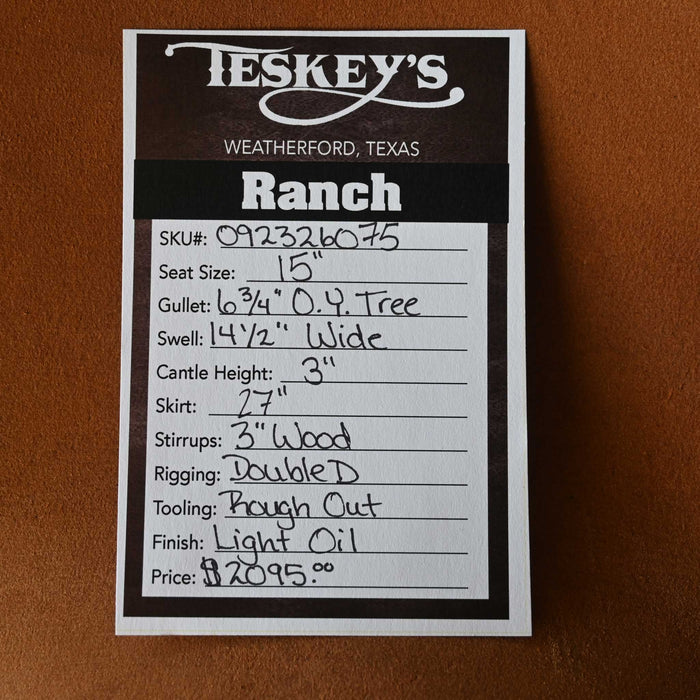 TESKEY'S
WEATHERFORD, TEXAS
Ranch
SKU#: 092326075
Seat Size: 15"
Gullet: 6 3/4" O.Y. Tree
Swell: 14 1/2" Wide
Cantle Height: 3"
Skirt: 27"
Stirrups: 3" Wood
Rigging: Double D
Tooling: Rough Out
Finish: Light Oil
Price: $2095.00